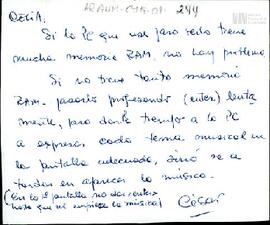 244
DELIA:
Si la PC que usas para esto tiene
mucha memoria RAM, no hay problema
Si no tiene tanta memoria
RAM pasarlo (enter) lenta
mente, para darle tiempo a la PC
a expresar cada tema musical en
la pantalla adecuada, sinó se
en aparecer la música.
(En la 1ª pantalla no dar enter
hasta que no empiece la música)
César